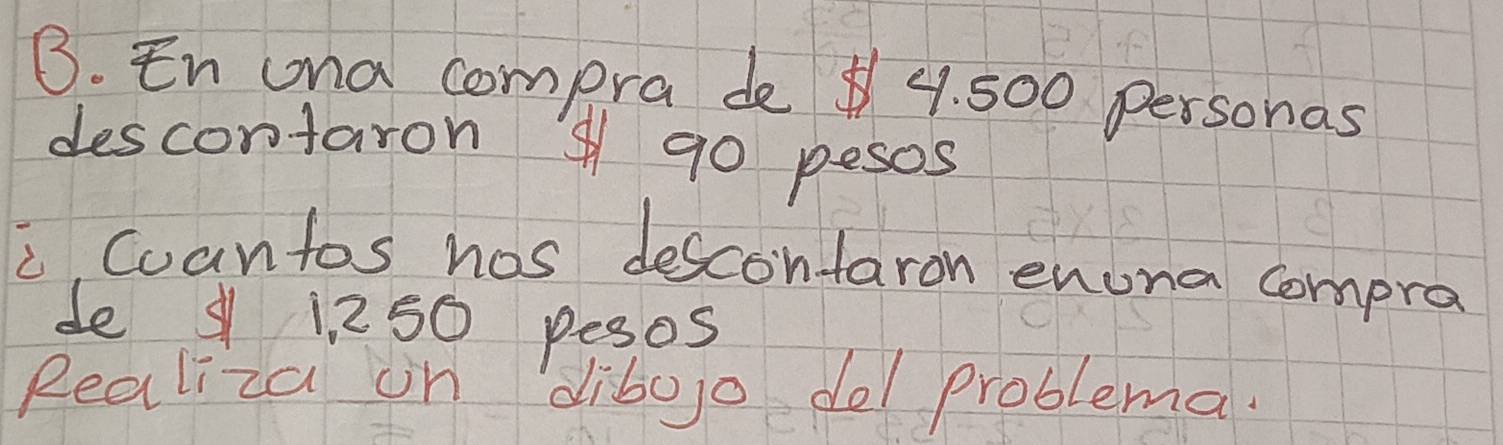 B. En una compra de $ 4.500 personas
descontaron $ 90 pesos
¿Cuantos nos descontaron enuna compra
de $ 1,250 pesos
Realiza un dibujo del problema.